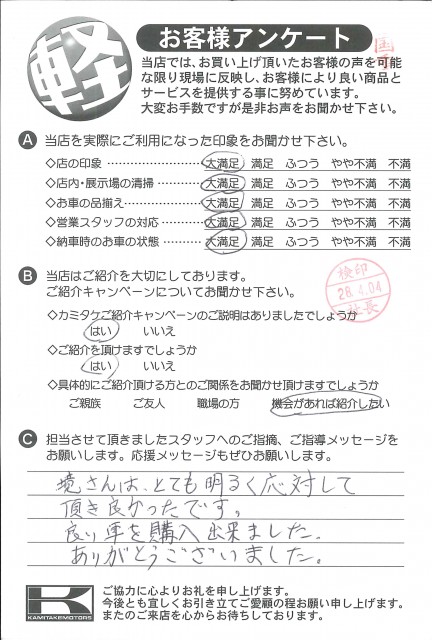 軽
お客様アンケート
国
当店では、お買い上げ頂いたお客様の声を可能
な限り現場に反映し、お客様により良い商品と
サービスを提供する事に努めています。
大変お手数ですが是非お声をお聞かせ下さい。
A 当店を実際にご利用になった印象をお聞かせ下さい。
◇店の印象 ………………… 大満足 満足 ふつう やや不満 不満
◇店内・展示場の清掃 ……… 大満足 満足 ふつう やや不満 不満
◇お車の品揃え……………… 大満足 満足 ふつう やや不満 不満
◇営業スタッフの対応 ……… 大満足 満足 ふつう やや不満 不満
◇納車時のお車の状態 ……… 大満足 満足 ふつう やや不満 不満
B 当店はご紹介を大切にしてあります。
ご紹介キャンペーンについてお聞かせ下さい。
検印
28.4.04
社長
◇カミタケご紹介キャンペーンのご説明はありましたでしょうか
はい いいえ
◇ご紹介を頂けますでしょうか
はい いいえ
◇具体的にご紹介頂ける方とのご関係をお聞かせ頂けますでしょうか
ご親族 ご友人 職場の方 機会があれば紹介したい
C 担当させて頂きましたスタッフへのご指摘、ご指導メッセージを
お願いします。応援メッセージもぜひお願いします。
境さんは、とても明るく応対して
頂き良かったです。
良い車を購入出来ました。
ありがとうございました。
K
KAMITAKEMOTORS
ご協力に心よりお礼を申し上げます。
今後とも宜しくお引き立てご愛顧の程お願い申し上げます。
またのご来店を心からお待ちしております。